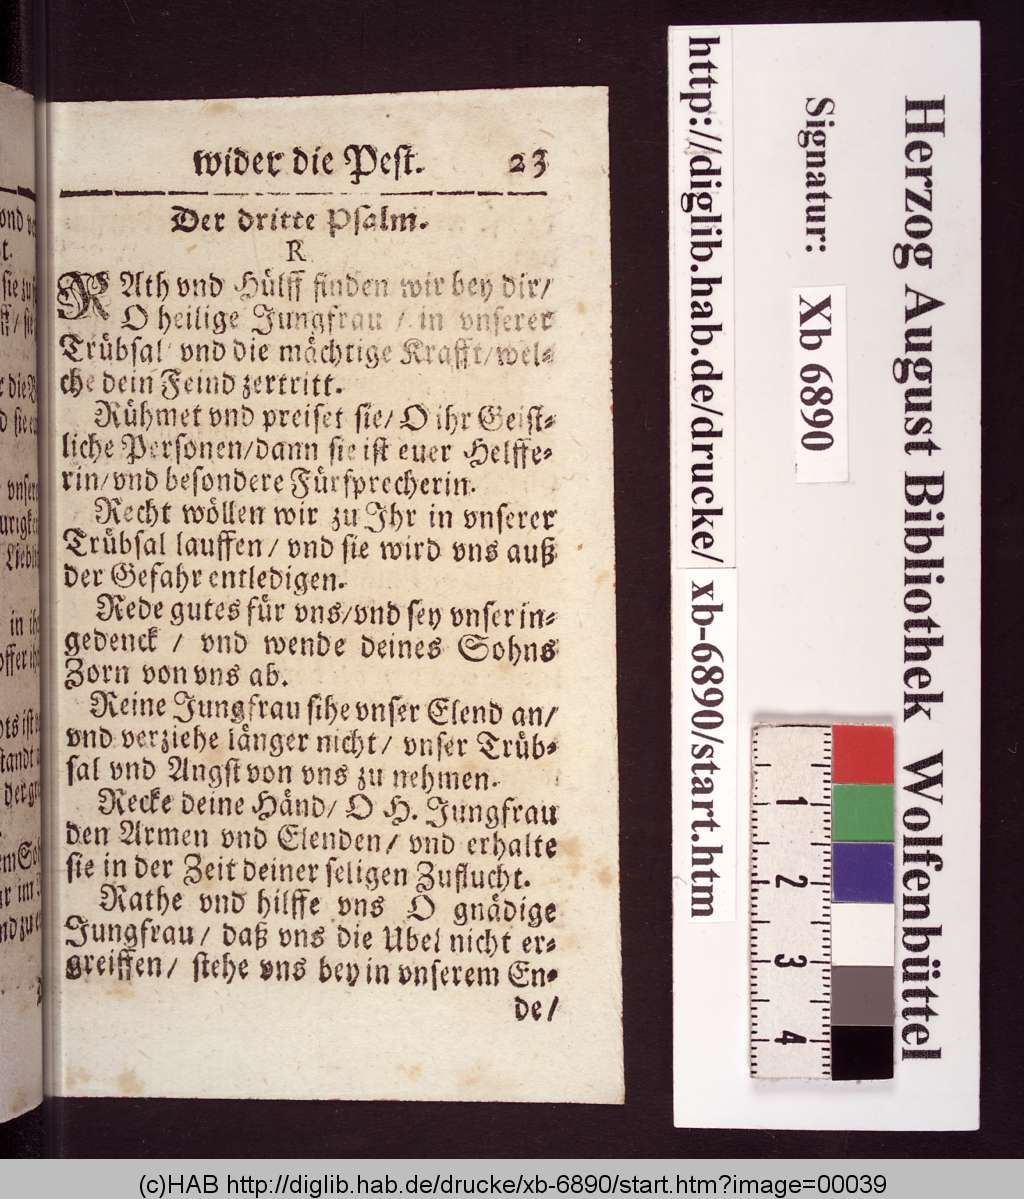 wider die Pest. 23
Der dritte Psalm.
R
RAth vnd Hülff finden wir bey dir/
O heilige Jungfrau / in vnserer
Trübsal vnd die mächtige Krafft/wel-
che dein Feind zertritt.
Rühmet vnd preiset sie/ O ihr Geist-
liche Personen/dann sie ist euer Helffe-
rin/vnd besondere Fürsprecherin.
Recht wöllen wir zu Ihr in vnserer
Trübsal lauffen/ vnd sie wird vns auß
der Gefahr entledigen.
Rede gutes für vns/vnd sey vnser in-
gedenck / vnd wende deines Sohns
Zorn von vns ab.
Reine Jungfrau sihe vnser Elend an/
vnd verziehe länger nicht/ vnser Trüb-
sal vnd Angst von vns zu nehmen.
Recke deine Händ/ O H. Jungfrau
den Armen vnd Elenden/ vnd erhalte
sie in der Zeit deiner seligen Zuflucht.
Rathe vnd hilffe vns O gnädige
Jungfrau/ daß vns die Ubel nicht er-
greiffen/ stehe vns bey in vnserem En-
de/
http://diglib.hab.de/drucke/ xb-6890/start.htm
Signatur: Xb 6890
Herzog August Bibliothek Wolfenbüttel
1
2
3
4
(c)HAB http://diglib.hab.de/drucke/xb-6890/start.htm?image=00039